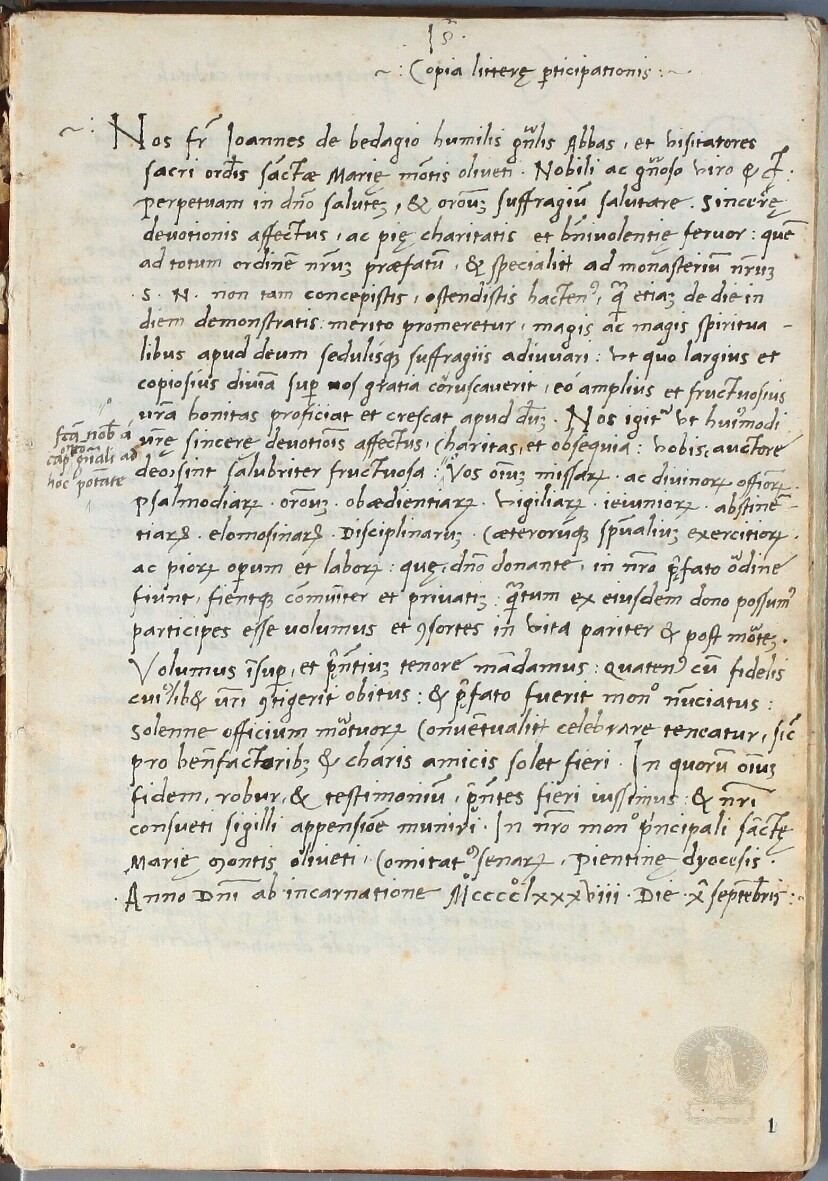 Is.
~: Copia litterę p̱ticipationis :~
~: Nos fr̄ Joannes de bedagio humilis gn̄lis Abbas, et visitatores
sacri ordīs sāctæ Marię mōtis oliveti. Nobili ac gn̄oso viro &
perpetuam in dn̄o salutēz, & oroūz suffragiū salutare. Sincerę
devotionis affectus, ac pię charitatis et bn̄ivolentię fervor: quē
ad totum ordinē nr̄uz præfatū, & specialit̄ ad monasteriū nr̄uz
.S. N. non tam concepistis, ostendistis hacten⁹, q̄ etiaz de die in
diem demonstratis: merito promeretur, magis ac magis spiritua-
libus apud deum sedulisq; suffragiis adiuvari: vt quo largius et
copiosius diviā sup̱ vos gratia coruscaverit, eo amplius et fructuosius
vr̄a bonitas proficiat et crescat apud dūz. Nos igit᷑ vt hui⁹modi
fctā nob̄ a
cap. gn̄ali ad
hoc potāte
vr̄ę sincerę devotiōis affectus, Charitas, et obsequia: vobis, auctore
deo, sint salubriter fructuosa: Vos oīuz missaꝝ. ac divinoꝝ offioꝝ.
psalmodiaꝝ. oroūz. obædientiaꝝ. vigiliaꝝ. ieiunioꝝ. abstinē-
tiaꝝ. elomosinaꝝ. Disciplinaruz. Cæterorūq; sp̄ualiuz exercitioꝝ.
ac pioꝝ op̱um et laboꝝ: quę, dn̄o donante, in nr̄o p̄fato ordine
fiunt, fientq; com̄uniter et privatiz: q̄tum ex eiusdem dono possum⁹
participes esse volumus et ꝯsortes in vita pariter & post mortēz.
Volumus īsup̱, et p̄n̄tiuz tenore mādamus: quaten⁹ cū fidelis
cui⁹lib& vr̄i ꝯtigerit obitus: & p̄fato fuerit monº nūciatus:
solenne officium mortuoꝝ Conventualit̄ celebrare teneatur, sic̄
pro ben̄factoribz & charis amicis solet fieri. In quorū oīuz
fidem, robur, & testimoniū, p̄n̄tes fieri iussimus: & nr̄i
consueti sigilli appensiōe muniri. In nr̄o monº p̄ncipali sāctę
Marię Montis oliveti, Comitat⁹ senaꝝ, Pientinę dyocesis.
.Anno Dn̄i ab incarnatione Mºccccºlxxxviii. Die x̄ septēbris:~
1